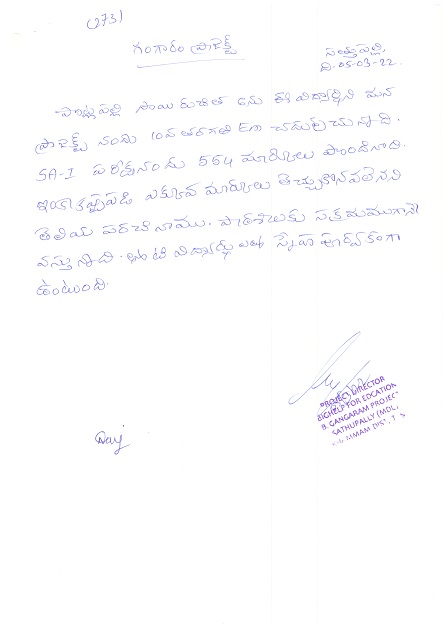 (273)
గంగారం ప్రాజెక్ట్
సత్తుపల్లి,
ది. 05-03-22.
పొట్ల పల్లి సాయి రుచిత అను ఈ విద్యార్థిని మన
ప్రాజెక్ట్ నందు 10వ తరగతి EM చదువు చున్నది.
SA-I పరీక్షనందు 564 మార్కులు పొందినది.
ఇంకా ఎక్కువ మార్కులు తెచ్చుకొనవలెనని
తెలియ పరచినాము. పాఠశాలకు సక్రమముగానే
వస్తున్నది. తోటి విద్యార్థులతో స్నేహ పూర్వకంగా
ఉంటుంది.
PROJECT DIRECTOR
BIGHELP FOR EDCATION
B. GANGARAM PROJECT
SATHUPALLY (MDL,
KHAMMAM DIST. T S